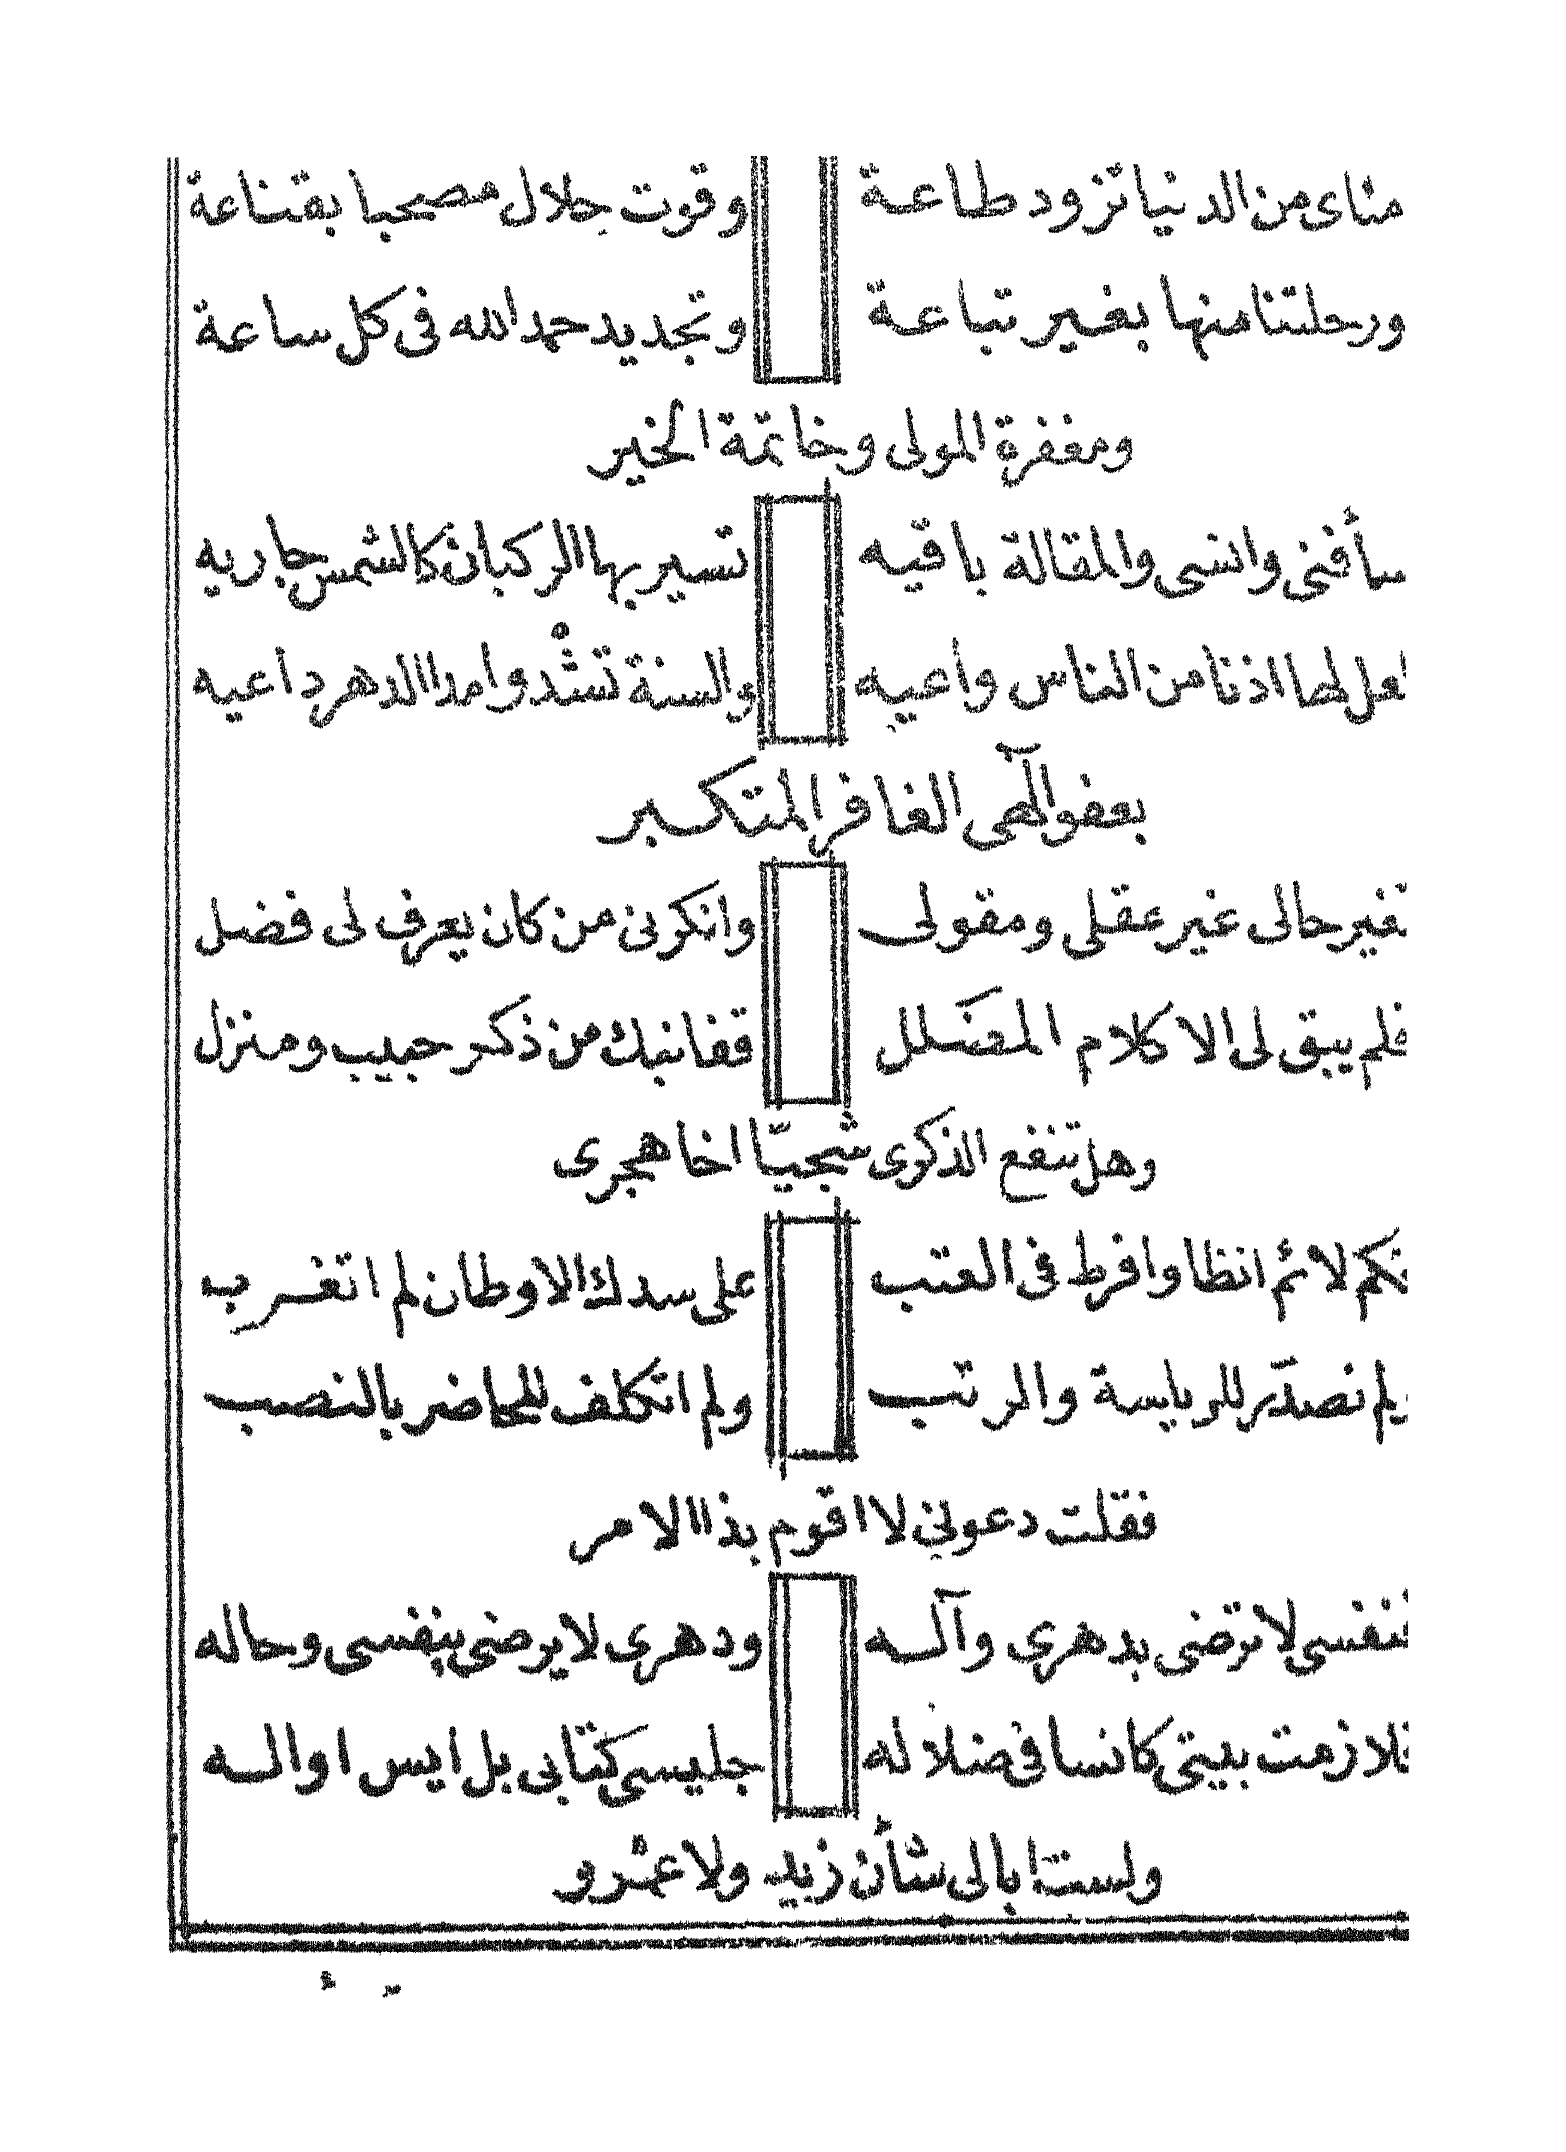 مناى من الدنيا تزود طاعة وقوت حلال مصحبا بقناعة
ورحلتنا منها بغير تباعة وتجديد حمد الله فى كل ساعة
ومغفرة المولى وخاتمة الخير
سأفنى وانسى والمقالة باقيه تسير بها الركبان كالشمس جاريه
لعل لها اذنا من الناس واعيه والسنة تشْدو امد الدهر داعيه
بعفو الٓهى الغافر المتكبر
تغير حالى غير عقلى ومقولى وانكرنى من كان يعرف لى فضل
فلم يبق لى الا كلام المعضلل قفانبك من ذكر حبيب ومنزل
وهل تنفع الذكرى شجيّا اخا هجرى
فكم لائم انظا وافرط فى العتب على سدك الاوطان لم اتغرب
ولم نصدّر للرياسة والمرتب ولم اتكلف للمحاضر بالنصب
فقلت دعونى لا اقوم بذا الامر
فنفسى لا ترضى بدهرى وآله ودهرى لا يرضى بنفسى وحاله
فلازمت بيتى كانسا فى ضلاله جليسى كتابى بل ايس اواله
ولست ابالى شأن زيد ولا عمْرو